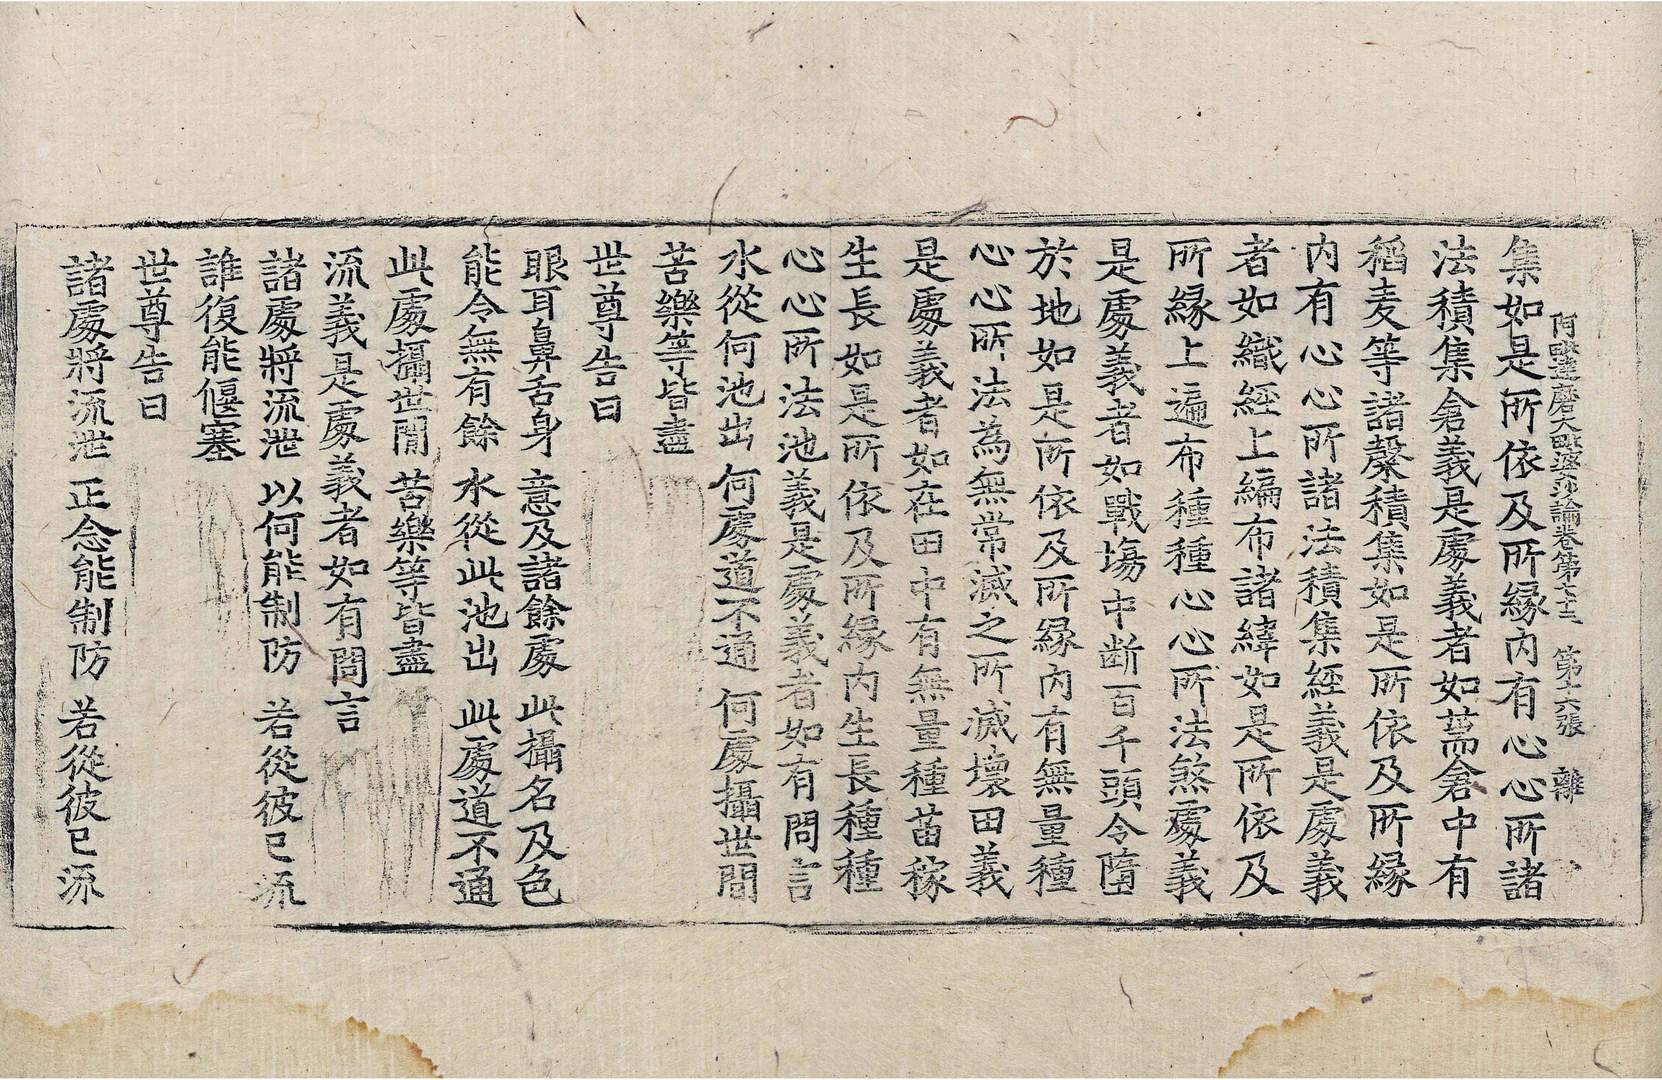 阿毗達磨大毗婆沙論卷第七十三　第十六張　離
集如是所依及所縁内有心心所諸
法積集倉義是處義者如篅倉中有
稻麦等諸穀積集如是所依及所縁
内有心心所諸法積集經義是處義
者如織經上編布諸緯如是所依及
所縁上遍布種種心心所法煞處義
是處義者如戰塲中断百千頭令墮
於地如是所依及所縁内有無量種
心心所法為無常滅之所滅壞田義
是處義者如在田中有無量種苗稼
生長如是所依及所縁内生長種種
心心所法池義是處義者如有問言
水從何池出　何處道不通　何處攝世間
苦樂等皆盡
世尊告曰
眼耳鼻舌身　意及諸餘處　此攝名及色
能令無有餘　水從此池出　此處道不通
此處攝世間　苦樂等皆盡
流義是處義者如有問言
諸處將流泄　以何能制防　若從彼已流
誰復能偃塞
世尊告曰
諸處將流泄　正念能制防　若從彼已流